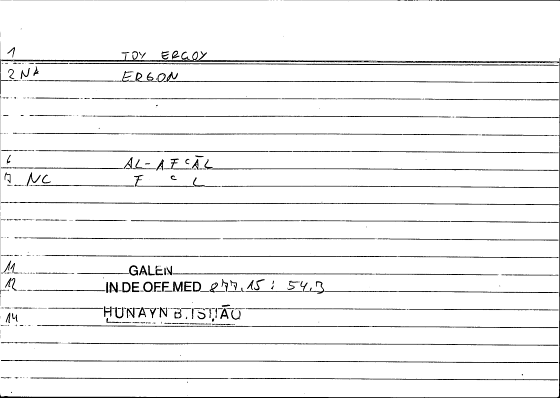 1 TOY ERGOY
2 NA ERGON
6 AL-AFᶜĀL
7 NC F ᶜ L
11 GALEN
12 IN DE OFF.MED 877.15 : 54.3
14 HUNAYN B.